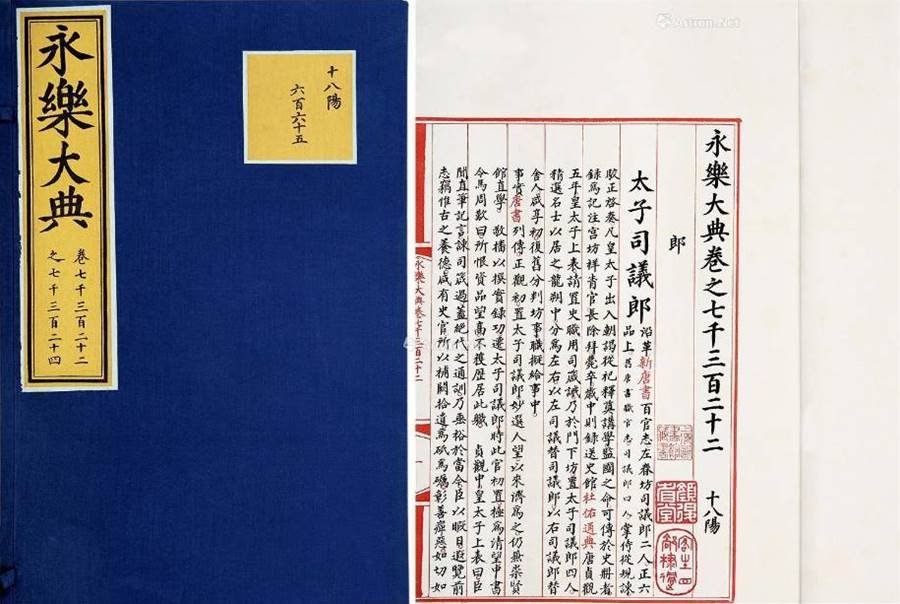 永樂大典
卷七千三百二十二
之七千三百二十四
十八陽
六百六十五
Artron.Net
永樂大典卷之七千三百二十二 十八陽
郎
太子司議郎 沿革新唐書百官志左春坊司議郎二人正六
品上舊唐書職官志司議郎四人掌侍從規諫
駁正啓奏凡皇太子出入朝謁從祀釋奠講學監國之命可傳於史冊者
錄爲記注宮坊祥眚官長除拜薨卒歲中則錄送史館杜佑通典唐貞觀
五年皇太子上表請置史職用司箴誡乃於門下坊置太子司議郎四人
精選名士以居之龍朔中分爲左右以左司議替司議郎以右司議郎替
舍人咸亨初復舊分判坊事職擬給事中
事實唐書列傳正觀初置太子司議郎妙選人望以來濟爲之仍兼崇賢
館直學 敬播以撰實錄功遷太子司議郎時此官初置極爲清望中書
令馬周歎曰所恨資品望高不獲歷居此職 貞觀中皇太子上表曰臣
聞直筆記言諫司箴過蓋絕代之通訓乃垂裕於當今臣以暇日遊覽前
志竊惟古之養德咸有史官所以補闕拾遺爲砥爲礪彰善癉惡如切如
永樂大典卷七千三百二十二